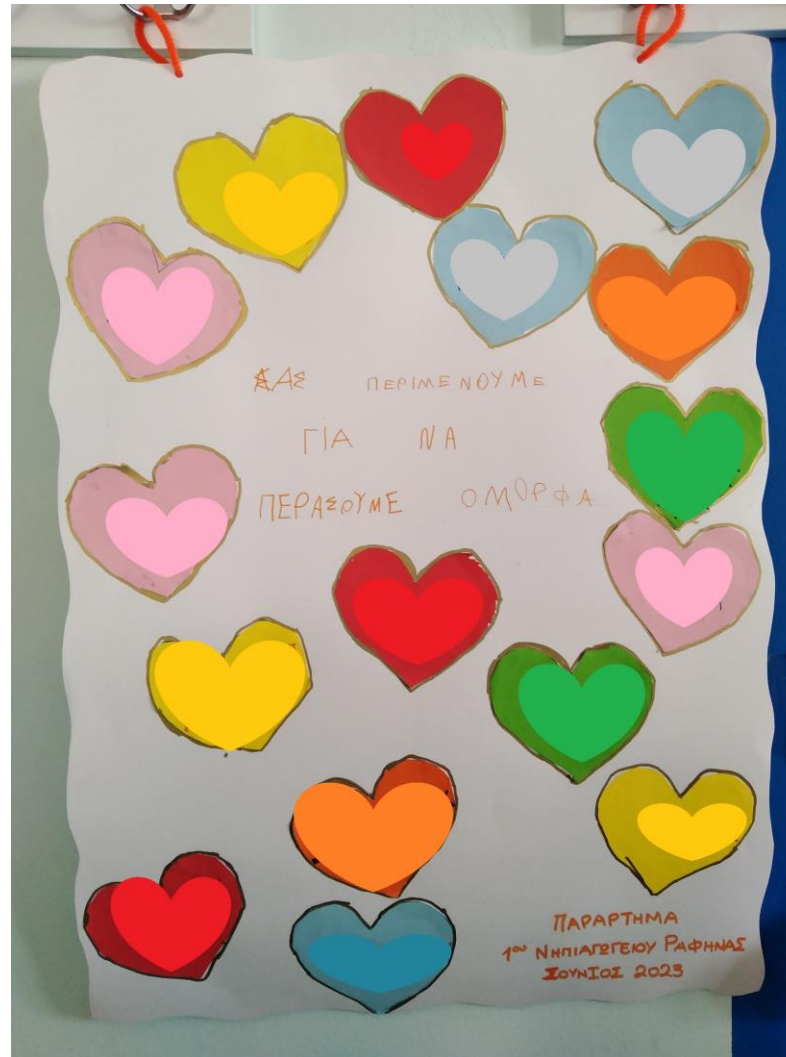 ΣΑΣ ΠΕΡΙΜΕΝΟΥΜΕ
ΓΙΑ ΝΑ
ΠΕΡΑΣΟΥΜΕ ΟΜΟΡΦΑ
ΠΑΡΑΡΤΗΜΑ
1ου ΝΗΠΙΑΓΩΓΕΙΟΥ ΡΑΦΗΝΑΣ
ΙΟΥΝΙΟΣ 2023